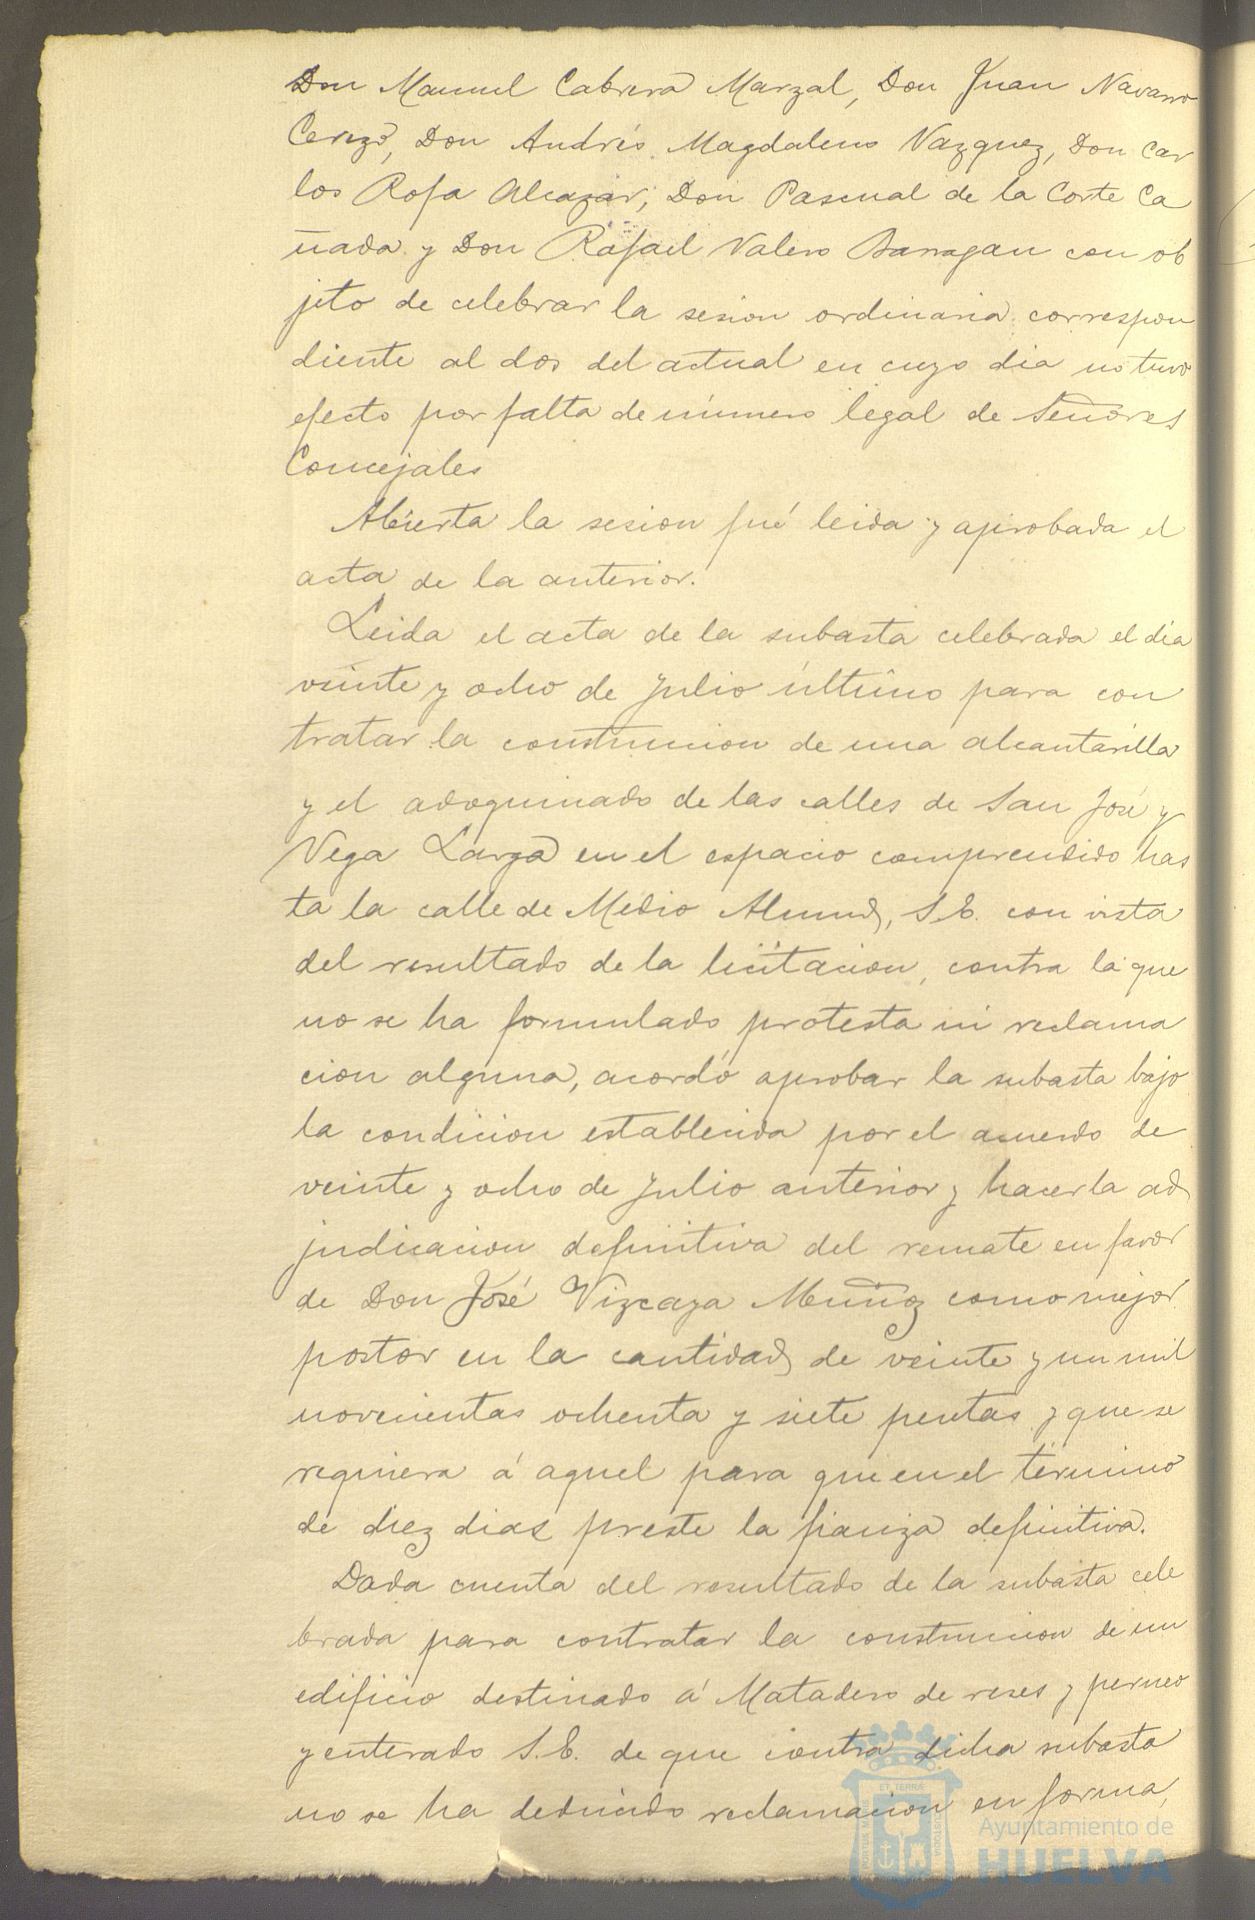 Don Manuel Cabrera Marzal, Don Juan Navarro
Cerezo, Don Andrés Magdaleno Vazquez, Don Car
los Rofa Alcazar, Don Pascual de la Corte Ca
ñada y Don Rafael Valero Barragan con ob
jeto de celebrar la sesion ordinaria correspon
diente al dos del actual en cuyo dia no tuvo
efecto por falta de número legal de Señores
Concejales
Abierta la sesion fué leida y aprobada el
acta de la anterior.
Leida el acta de la subasta celebrada el dia
veinte y ocho de Julio último para con
tratar la construccion de una alcantarilla
y el adoquinado de las calles de San José y
Vega Larga en el espacio comprendido has
ta la calle de Medio Almud, S.E. con vista
del resultado de la licitacion, contra la que
no se ha formulado protesta ni reclama
cion alguna, acordó aprobar la subasta bajo
la condicion establecida por el acuerdo de
veinte y ocho de Julio anterior y hacer la ad
judicacion definitiva del remate en favor
de Don José Vizcaya Muñoz como mejor
postor en la cantidad de veinte y un mil
novecientas ochenta y siete pesetas y que se
requiera á aquel para que en el término
de diez dias preste la fianza definitiva.
Dada cuenta del resultado de la subasta cele
brada para contratar la construccion de un
edificio destinado á Matadero de reses y perneo
y enterado S.E. de que contra dicha subasta
no se ha deducido reclamacion en forma,
ET TERRÆ
Ayuntamiento de
HUELVA